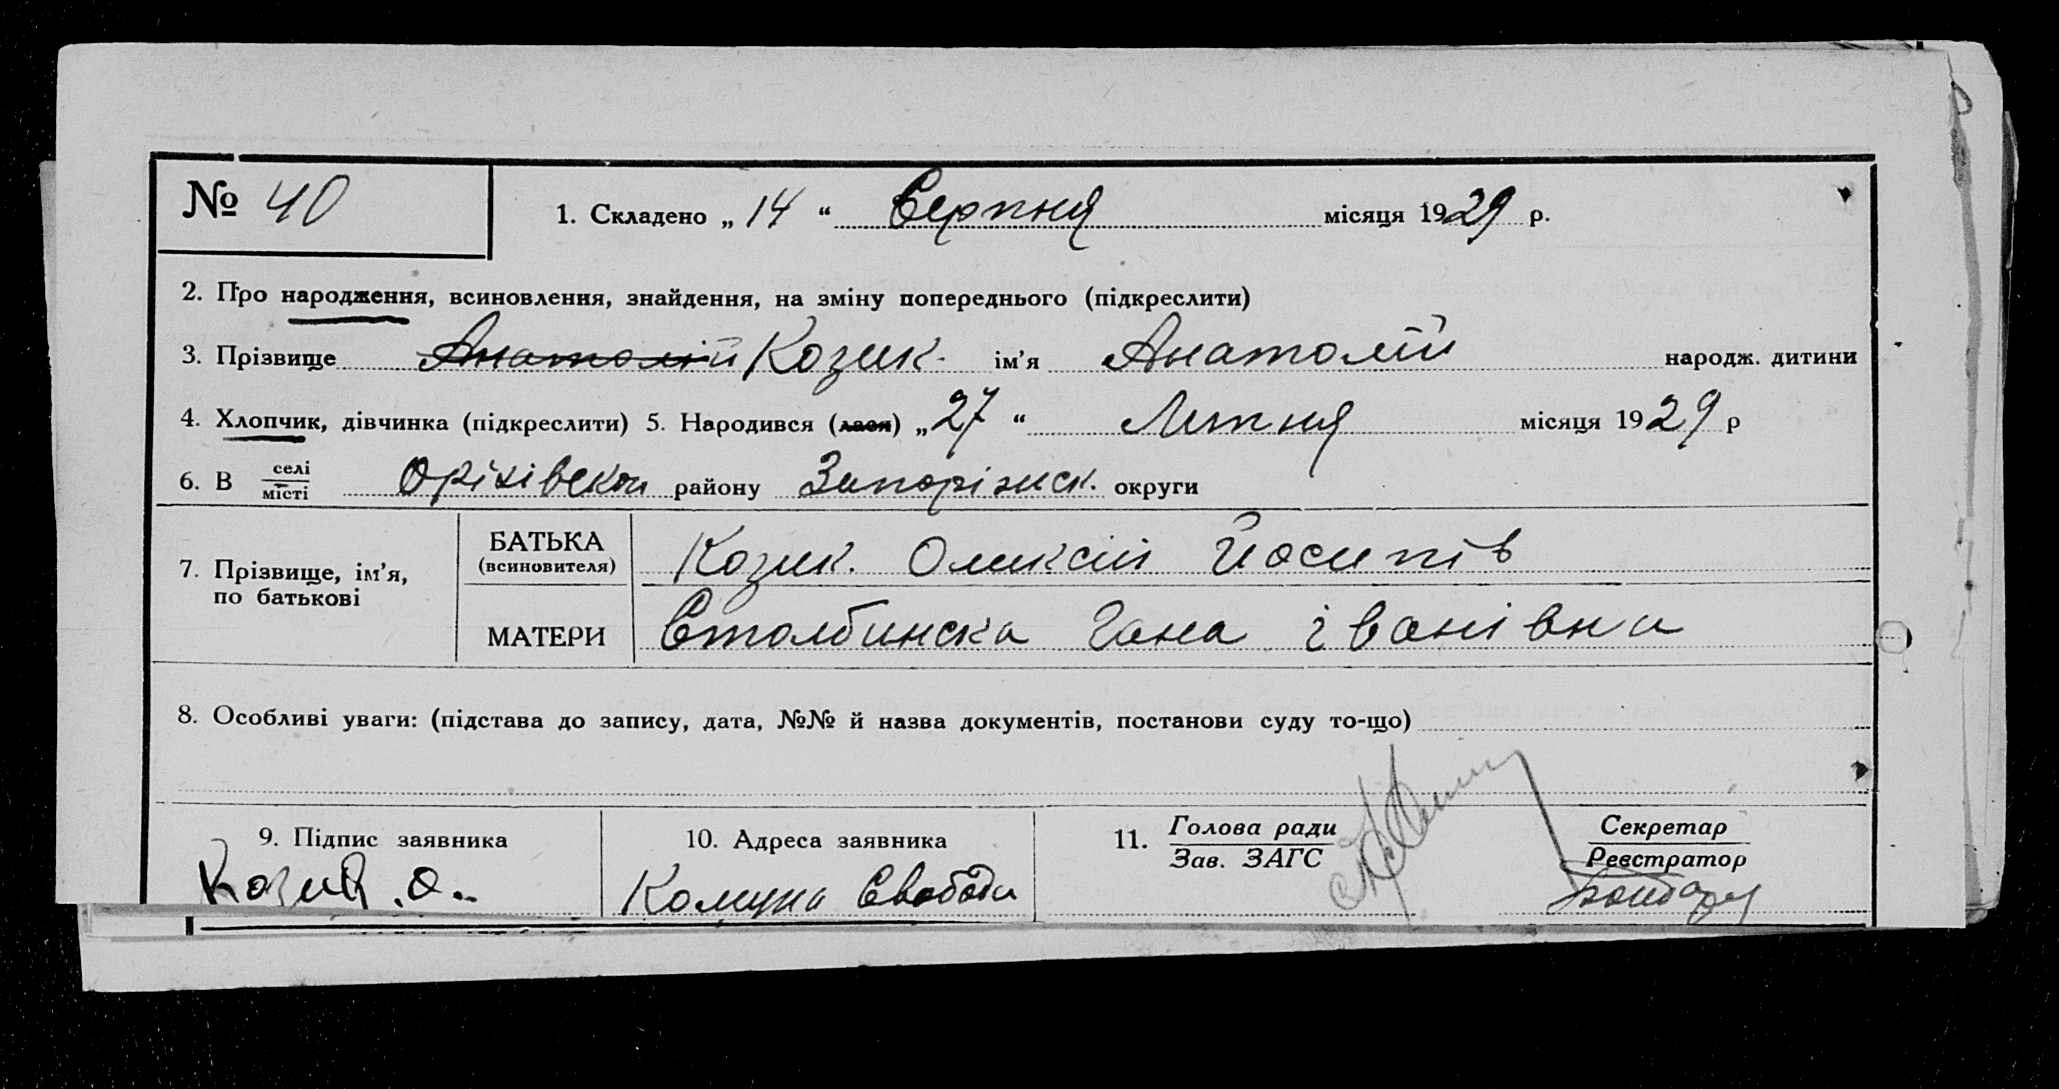 № 40
1. Складено „ 14 “ Серпня місяця 1929 р.
2. Про народження, всиновлення, знайдення, на зміну попереднього (підкреслити)
3. Прізвище Анатолій Козик. ім’я Анатолій народж. дитини
4. Хлопчик, дівчинка (підкреслити) 5. Народився (лася) „27 “ Липня місяця 1929 р
6. В селі
місті Оріхівськом району Запоріжск. округи
7. Прізвище, ім’я,
по батькові
БАТЬКА
(всиновителя)
Козик. Оликсій Йосипів
МАТЕРИ
Столбинска Гана іванівна
8. Особливі уваги: (підстава до запису, дата, №№ й назва документів, постанови суду то-що)
9. Підпис заявника
Козик. О..
10. Адреса заявника
Комуна Свободи
11. Голова ради
Зав. ЗАГС
Секретар
Реєстратор